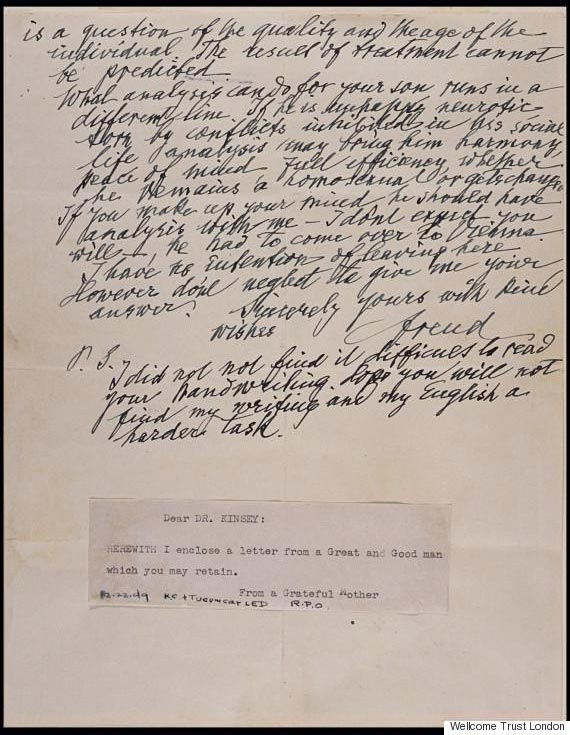 is a question of the quality and the age of the
individual. The result of treatment cannot
be predicted.
What analysis can do for your son runs in a
different line. If he is unhappy neurotic
torn by conflicts inhibited in his social
life analysis may bring him harmony
peace of mind full efficiency whether
he remains a homosexual or gets changed
If you make up your mind he should have
analysis with me — I dont expect you
will —, he had to come over to Vienna.
I have no intention of leaving here
However dont neglect to give me your
answer.
Sincerely yours with kind
wishes
Freud
P. S.
I did not not find it difficult to read
your handwriting. Hope you will not
find my writing and my English a
harder task.
Dear DR. KINSEY:
HEREWITH I enclose a letter from a Great and Good man
which you may retain.
From a Grateful Mother
R.P.O.
Wellcome Trust London